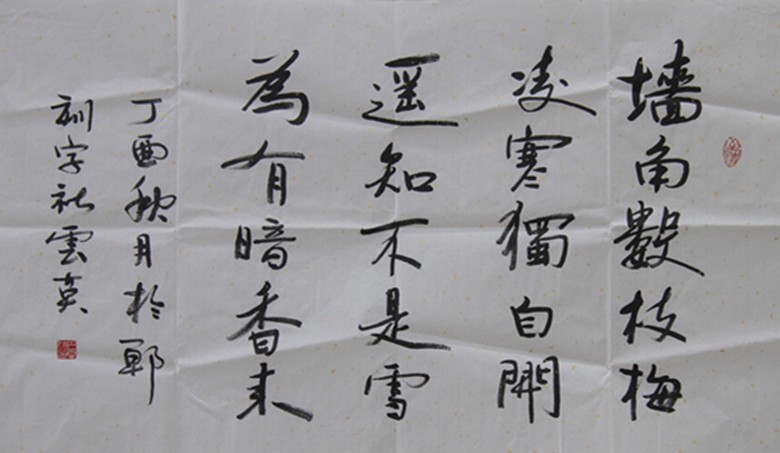 墻角數枝梅
凌寒獨自開
遥知不是雪
為有暗香来
丁酉秋月於鄆
訓字社雲英